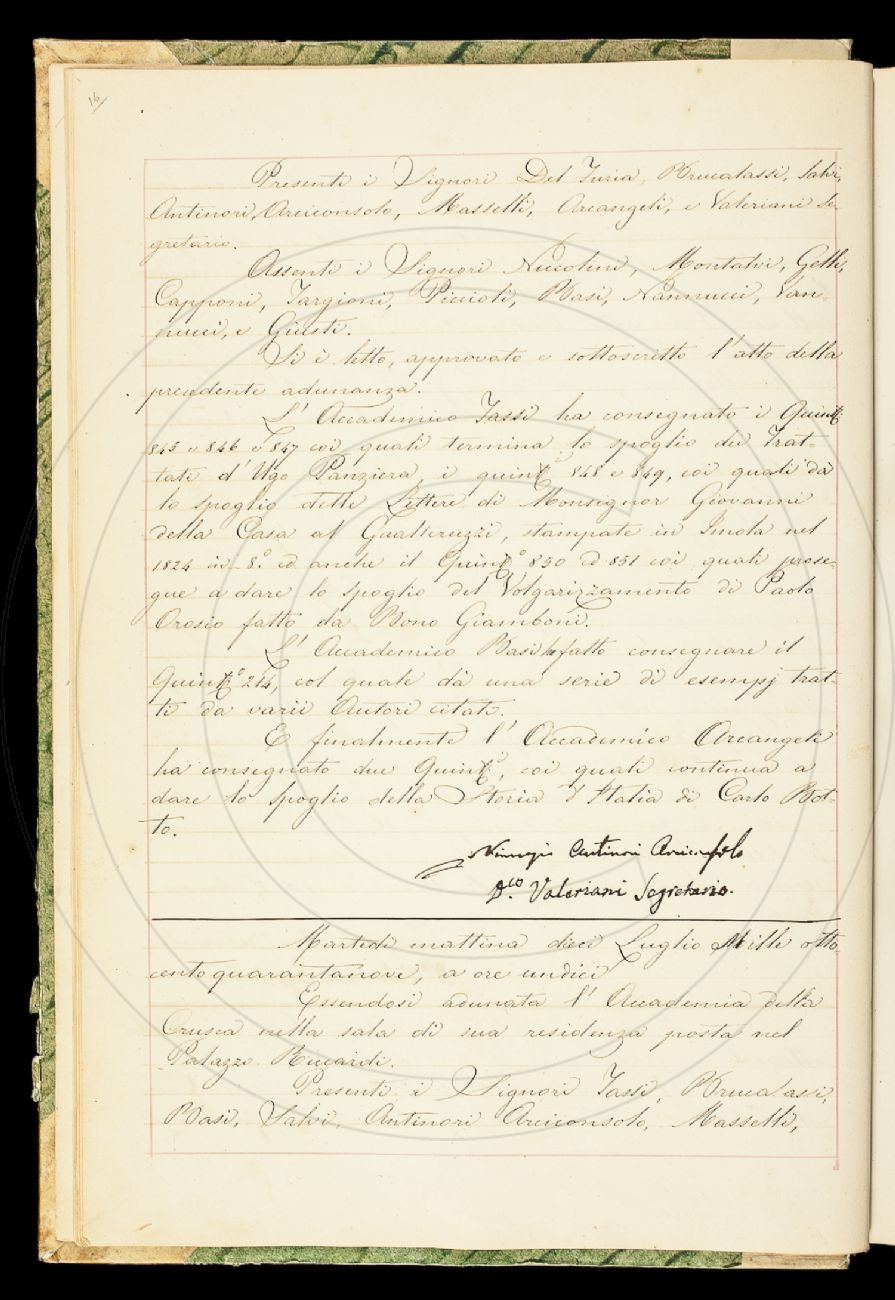 16
Presenti i Signori Del Furia, Brucalassi, Salvi,
Antinori Arciconsolo, Masselli, Arcangeli, e Valeriani Se-
gretario.
Assenti i Signori Niccolini, Montalvi, Gelli,
Capponi, Targioni, Piccioli, Basi, Nannucci, Van-
nucci, e Giusti.
Si è letto, approvato e sottoscritto l'atto della
precedente adunanza.
L'Accademico Tassi ha consegnato i Quint.i
845 e 846 e 847 coi quali termina lo spoglio dei Trat-
tati d'Ugo Panziera, i quint.i 848 e 849, coi quali dà
lo spoglio delle Lettere di Monsignor Giovanni
della Casa al Gualteruzzi, stampate in Imola nel
1824 in 8.o ed anche il Quint.o 850 ed 851 coi quali prose-
gue a dare lo spoglio del Volgarizzamento di Paolo
Orosio fatto da Bono Giamboni.
L'Accademico Basi ha fatto consegnare il
Quint.o 214, col quale dà una serie di esempj trat-
ti da varii Autori citati.
E finalmente l'Accademico Arcangeli
ha consegnato due Quint.i, coi quali continua a
dare lo spoglio della Storia d'Italia di Carlo Bot-
to.
Antinori Arciconsolo
D.co Valeriani Segretario.
Martedì mattina dieci Luglio Mille otto-
cento quarantanove, a ore undici
Essendosi adunata l'Accademia della
Crusca nella sala di sua residenza posta nel
Palazzo Riccardi.
Presenti i Signori Tassi, Brucalassi,
Basi, Salvi, Antinori Arciconsolo, Masselli,